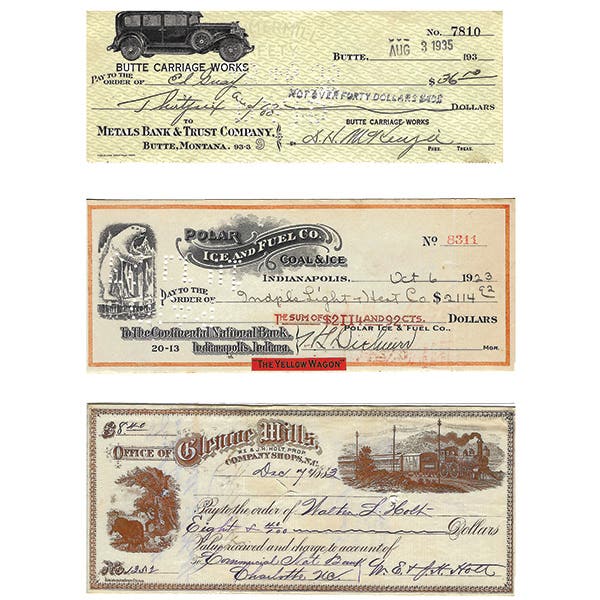 No. 7810
BUTTE, AUG 3 1935 193
BUTTE CARRIAGE WORKS
PAY TO THE
ORDER OF El Guay $36.50
NOT OVER FORTY DOLLARS $40$
Thirtysix and 50/100 DOLLARS
TO
METALS BANK & TRUST COMPANY,
BUTTE, MONTANA. 93-3 9
BUTTE CARRIAGE WORKS
BY D. H. McKenzie
PRES. TREAS.
POLAR
ICE AND FUEL CO.
COAL & ICE
No 8311
INDIANAPOLIS, Oct 6 1923
PAY TO THE
ORDER OF Indpls Light & Heat Co $2114 92
THE SUM OF $2114 AND 92 CTS. DOLLARS
POLAR ICE & FUEL CO.
To The Continental National Bank,
20-13 Indianapolis, Indiana.
MGR.
"THE YELLOW WAGON"
$8.40
OFFICE OF Glencoe Mills.
W.E. & J.H. HOLT, PROP.
COMPANY SHOPS, N.C.
Dec 7 1882
Pay to the order of Walter L. Holt
Eight & 40/100 Dollars
Value received and charge to account of
To Commercial Nat Bank
Charlotte, NC. W. E. & J. H. Holt
No 1252